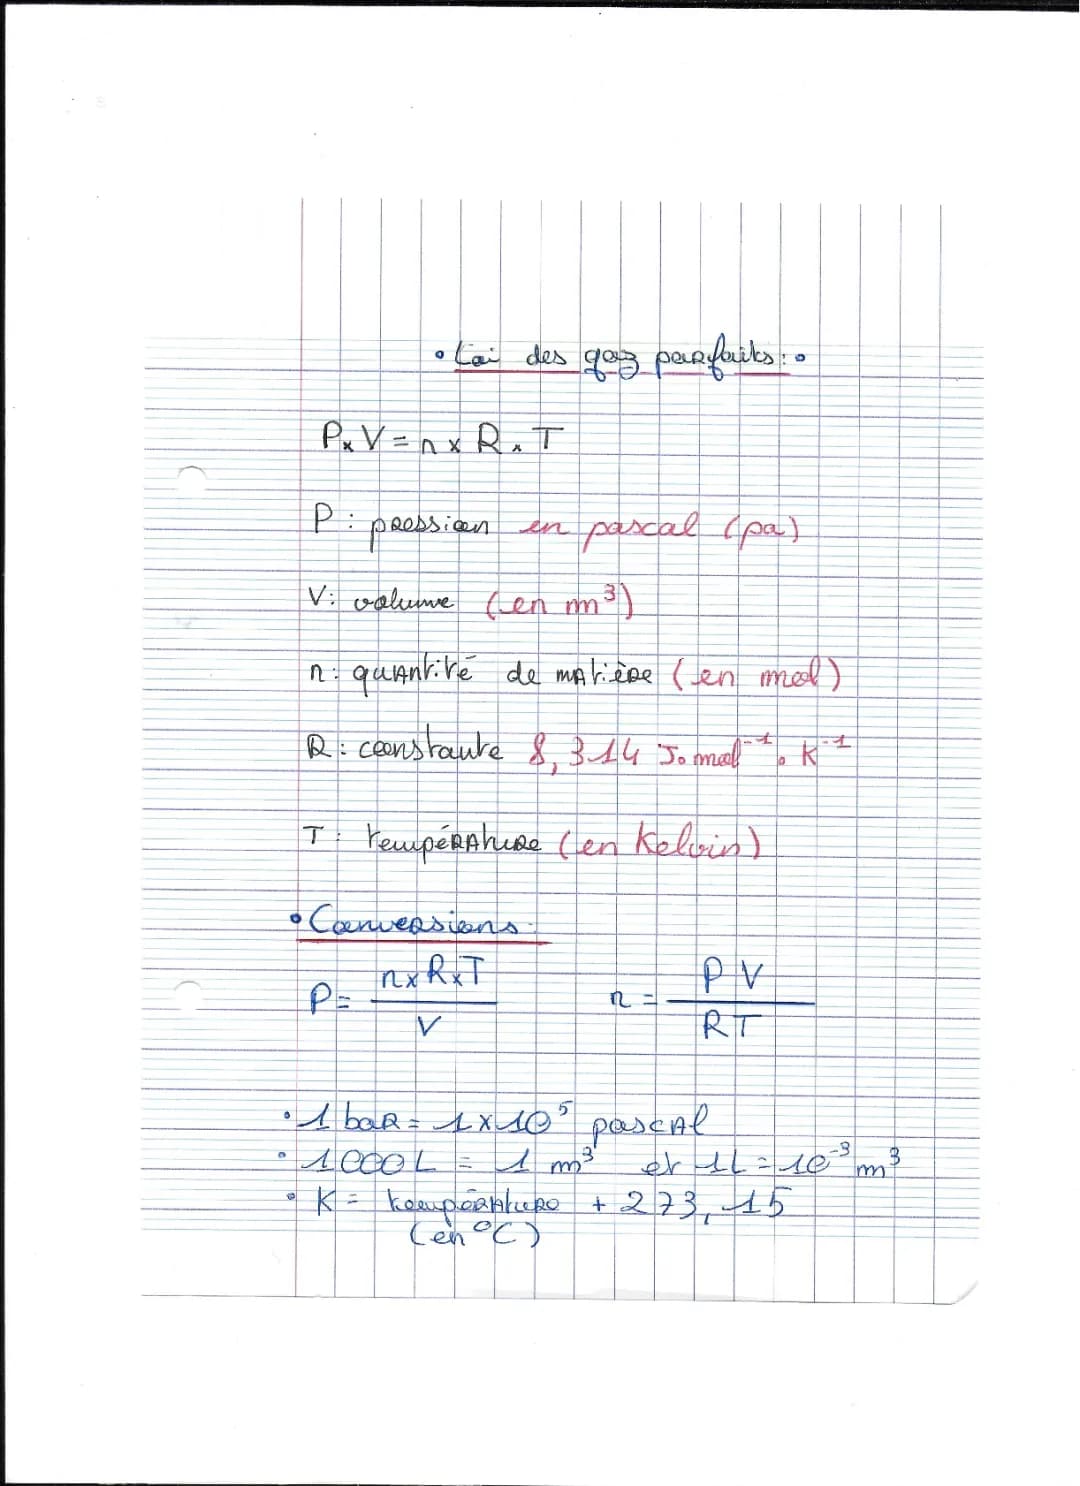 • Loi des gaz parfaits : •
P x V = n x R x T
P : pression en pascal (pa)
V : volume (en m³)
n : quantité de matière (en mol)
R : constante 8,314 J. mol⁻¹ . K⁻¹
T : température (en Kelvin)
• Conversions
P = n x R x T / V n = P V / R T
• 1 bar = 1 x 10⁵ pascal
• 1000 L = 1 m³ et 1L = 10⁻³ m³
• K = température + 273,15
(en °C)